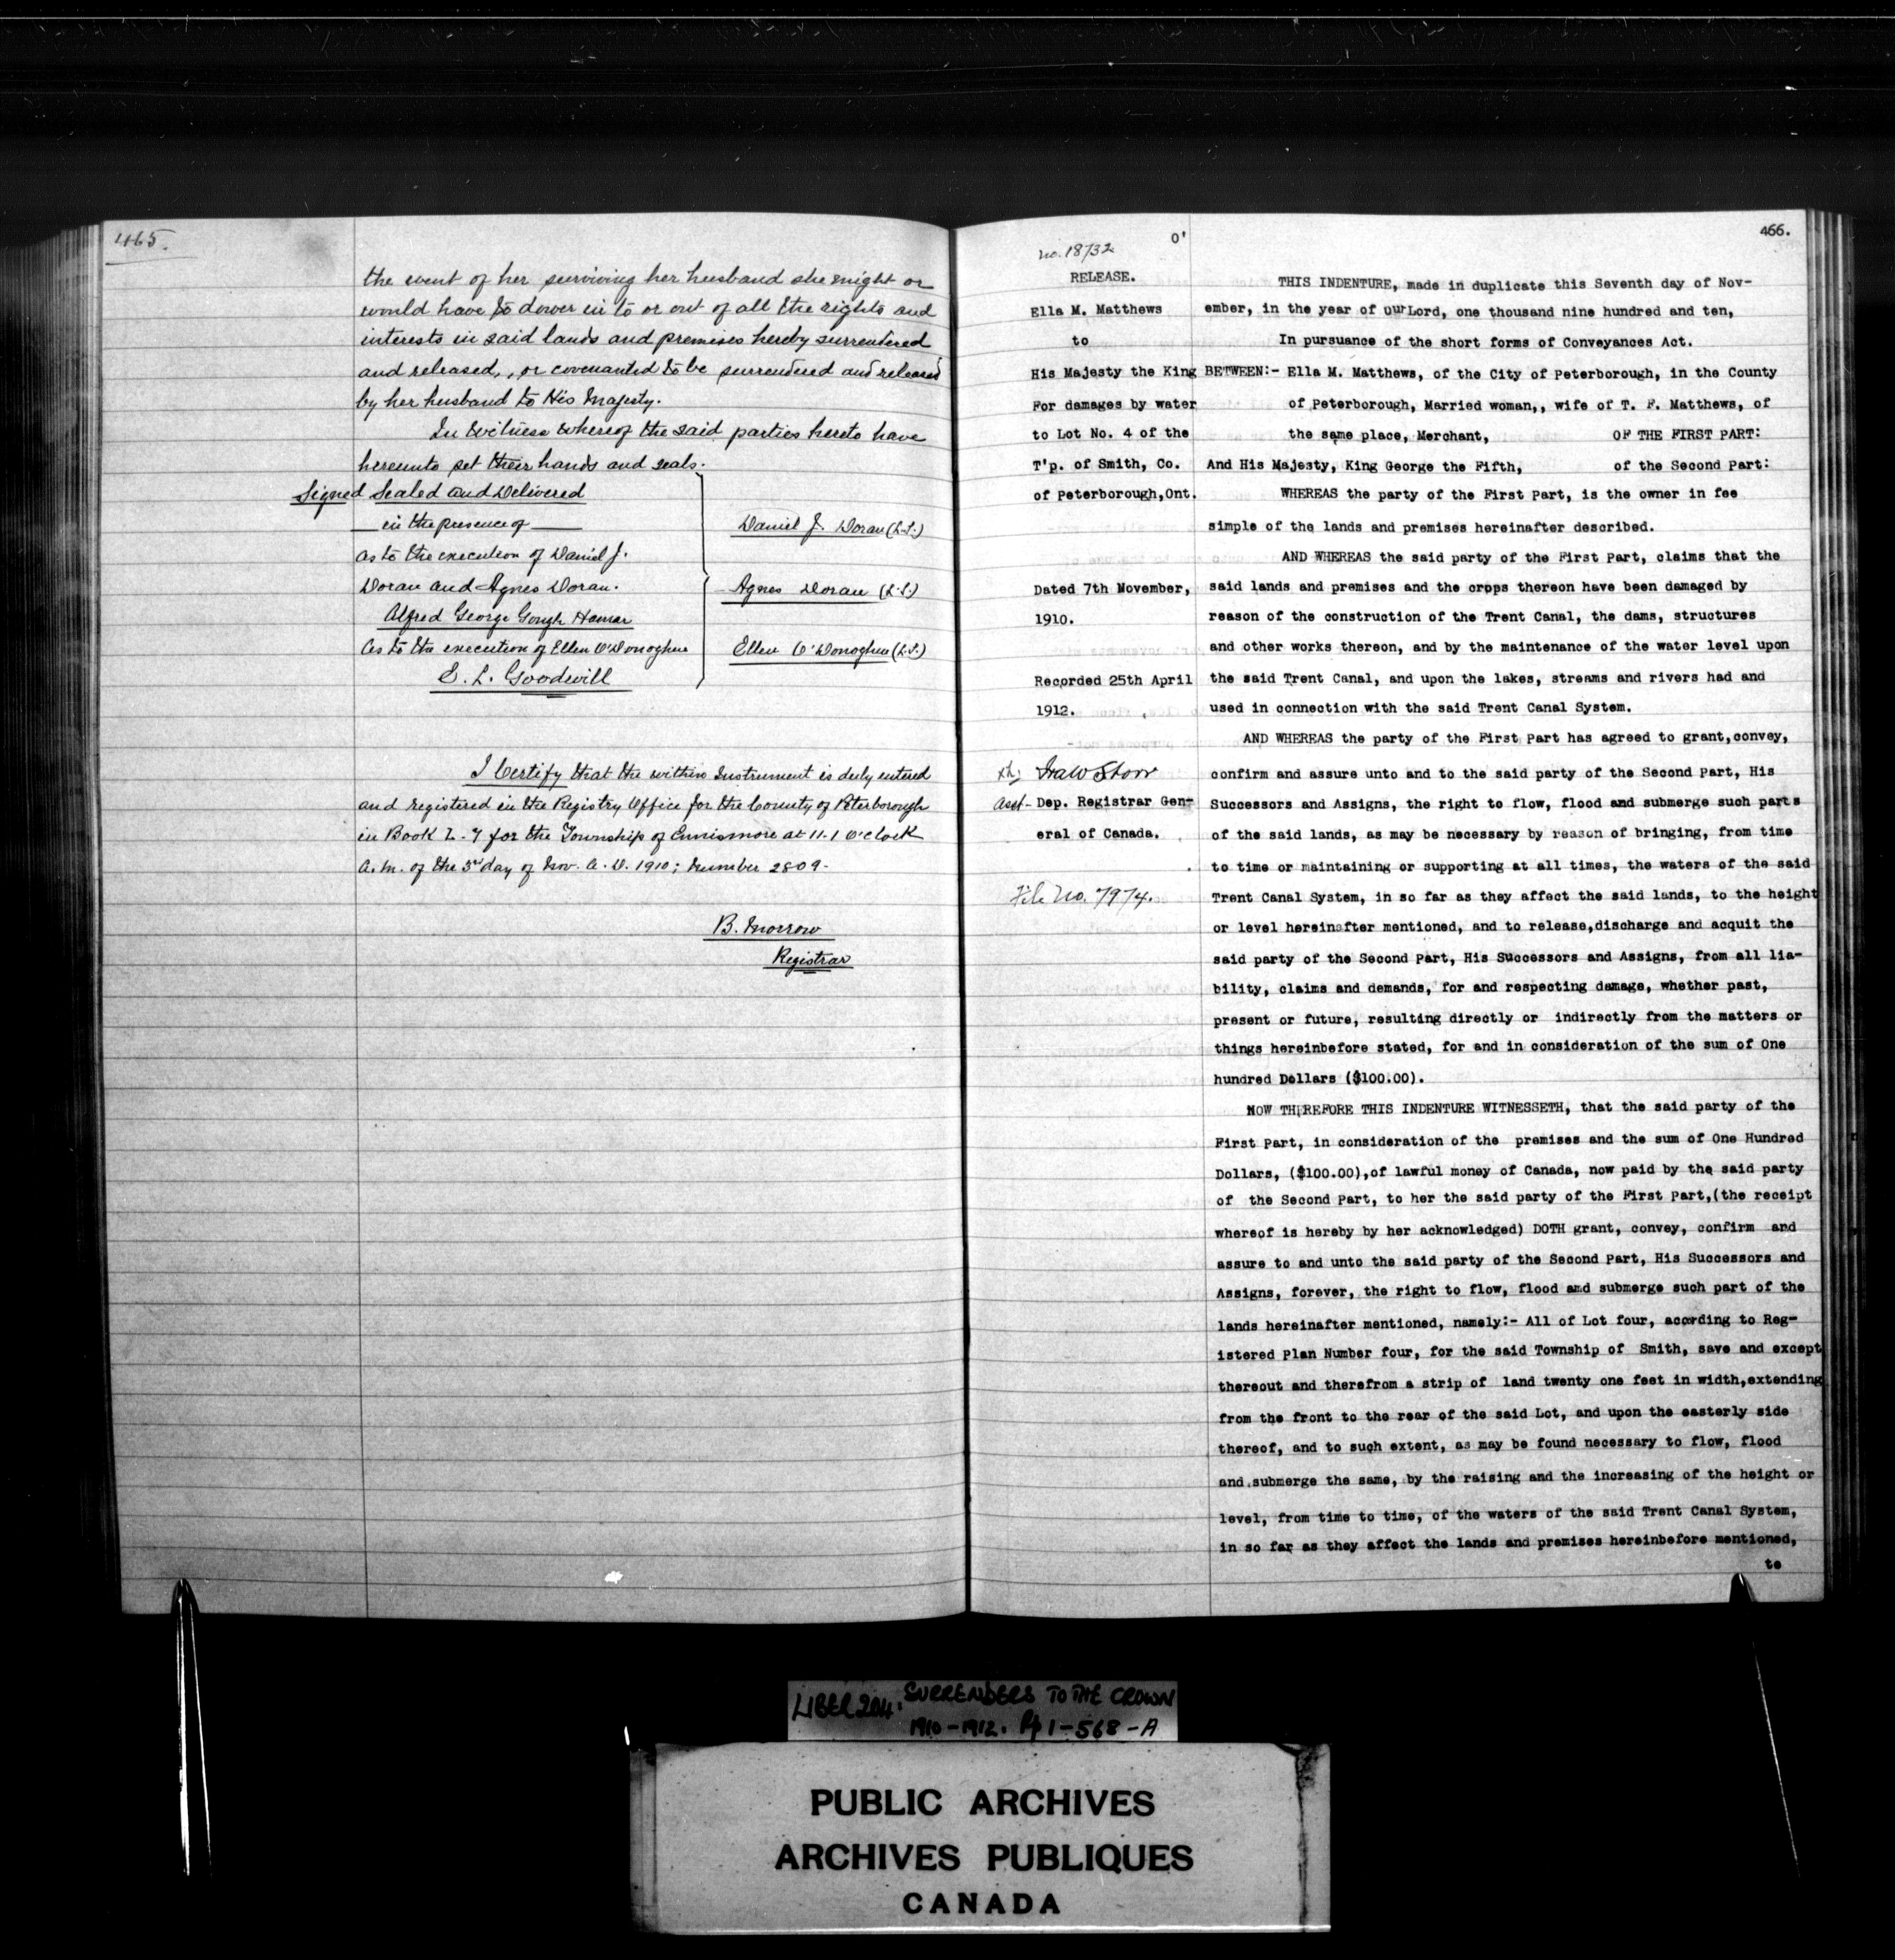 465.
the event of her surviving her husband she might or
would have to dower in to or out of all the rights and
interests in said lands and premises hereby surrendered
and released,, or covenanted to be surrendered and released
by her husband to His Majesty.
In Witness whereof the said parties hereto have
hereunto set their hands and seals.
Signed Sealed and Delivered
in the presence of
Daniel J. Doran (L.S.)
as to the execution of Daniel J.
Doran and Agnes Doran.
Agnes Doran (L.S.)
Alfred George Gough Hamar
As to the execution of Ellen O'Donoghue
Ellen O'Donoghue (L.S.)
E. L. Goodwill
I Certify that the within Instrument is duly entered
and registered in the Registry Office for the County of Peterborough
in Book L-7 for the Township of Ennismore at 11-1 O'clock
A.M. of the 3rd day of Nov. A.D. 1910; Number 2809-
B. Morrow
Registrar
466.
O'
No. 18732
RELEASE.
Ella M. Matthews
to
His Majesty the King
For damages by water
to Lot No. 4 of the
T'p. of Smith, Co.
of Peterborough,Ont.
Dated 7th November,
1910.
Recorded 25th April
1912.
Asst- Dep. Registrar Gen-
eral of Canada.
File No. 7974.
THIS INDENTURE, made in duplicate this Seventh day of Nov-
ember, in the year of our Lord, one thousand nine hundred and ten,
In pursuance of the short forms of Conveyances Act.
BETWEEN:- Ella M. Matthews, of the City of Peterborough, in the County
of Peterborough, Married woman,, wife of T. F. Matthews, of
the same place, Merchant, OF THE FIRST PART:
And His Majesty, King George the Fifth, of the Second Part:
WHEREAS the party of the First Part, is the owner in fee
simple of the lands and premises hereinafter described.
AND WHEREAS the said party of the First Part, claims that the
said lands and premises and the crops thereon have been damaged by
reason of the construction of the Trent Canal, the dams, structures
and other works thereon, and by the maintenance of the water level upon
the said Trent Canal, and upon the lakes, streams and rivers had and
used in connection with the said Trent Canal System.
AND WHEREAS the party of the First Part has agreed to grant,convey,
confirm and assure unto and to the said party of the Second Part, His
Successors and Assigns, the right to flow, flood and submerge such parts
of the said lands, as may be necessary by reason of bringing, from time
to time or maintaining or supporting at all times, the waters of the said
Trent Canal System, in so far as they affect the said lands, to the height
or level hereinafter mentioned, and to release,discharge and acquit the
said party of the Second Part, His Successors and Assigns, from all lia-
bility, claims and demands, for and respecting damage, whether past,
present or future, resulting directly or indirectly from the matters or
things hereinbefore stated, for and in consideration of the sum of One
hundred Dollars ($100.00).
NOW THEREFORE THIS INDENTURE WITNESSETH, that the said party of the
First Part, in consideration of the premises and the sum of One Hundred
Dollars, ($100.00),of lawful money of Canada, now paid by the said party
of the Second Part, to her the said party of the First Part,(the receipt
whereof is hereby by her acknowledged) DOTH grant, convey, confirm and
assure to and unto the said party of the Second Part, His Successors and
Assigns, forever, the right to flow, flood and submerge such part of the
lands hereinafter mentioned, namely:- All of Lot four, acording to Reg-
istered Plan Number four, for the said Township of Smith, save and except
thereout and therefrom a strip of land twenty one feet in width,extending
from the front to the rear of the said Lot, and upon the easterly side
thereof, and to such extent, as may be found necessary to flow, flood
and submerge the same, by the raising and the increasing of the height or
level, from time to time, of the waters of the said Trent Canal System,
in so far as they affect the lands and premises hereinbefore mentioned,
to
LIBER 204: SURRENDERS TO THE CROWN
1910-1912. Pp 1-568-A
PUBLIC ARCHIVES
ARCHIVES PUBLIQUES
CANADA